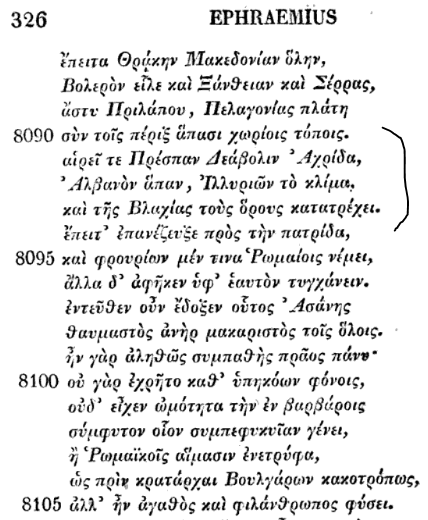 326 EPHRAEMIUS
ἔπειτα Θρᾴκην Μακεδονίαν ὅλην,
Βολερὸν εἷλε καὶ Ξάνθειαν καὶ Σέρρας,
ἄστυ Πριλάπου, Πελαγονίας πλάτη
8090 σὺν τοῖς πέριξ ἅπασι χωρίοις τόποις.
αἱρεῖ τε Πρέσπαν Δεάβολιν Ἀχρίδα,
Ἀλβανὸν ἅπαν, Ἰλλυριῶν τὸ κλίμα,
καὶ τῆς Βλαχίας τοὺς ὅρους κατατρέχει.
ἔπειτ᾽ ἐπανέζευξε πρὸς τὴν πατρίδα,
8095 καὶ φρουρίων μέν τινα Ῥωμαίοις νέμει,
ἄλλα δ᾽ ἀφῆκεν ὑφ᾽ ἑαυτὸν τυγχάνειν.
ἐντεῦθεν οὖν ἔδοξεν οὗτος Ἀσάνης
θαυμαστὸς ἀνὴρ μακαριστὸς τοῖς ὅλοις.
ἦν γὰρ ἀληθῶς συμπαθὴς πρᾶος πάνυ·
8100 οὐ γὰρ ἐχρῆτο καθ᾽ ὑπηκόων φόνοις,
οὐδ᾽ εἶχεν ὠμότητα τὴν ἐν βαρβάροις
σύμφυτον οἷον συμπεφυκυῖαν γένει,
ἢ Ῥωμαϊκοῖς αἵμασιν ἐνετρύφα,
ὡς πρὶν κρατάρχαι Βουλγάρων κακοτρόπως,
8105 ἀλλ᾽ ἦν ἀγαθὸς καὶ φιλάνθρωπος φύσει.